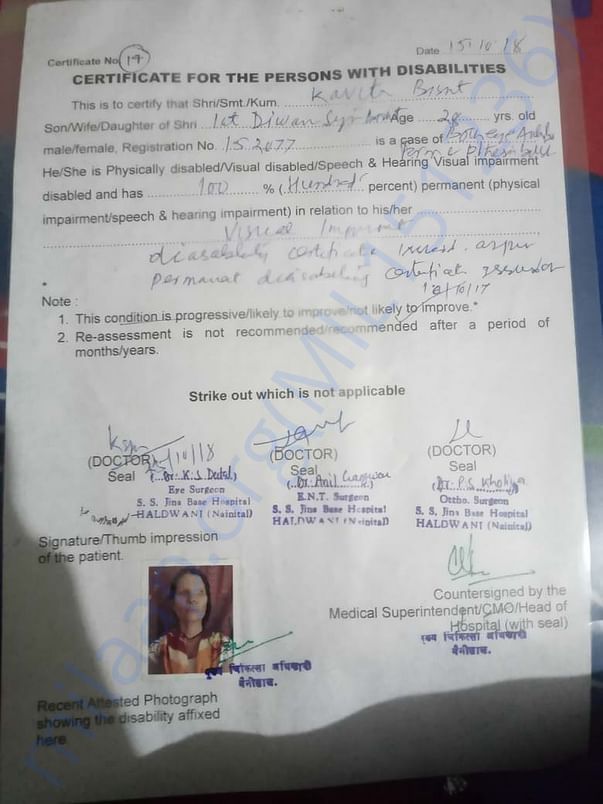 Certificate No. 17
Date 15.10.18
CERTIFICATE FOR THE PERSONS WITH DISABILITIES
This is to certify that Shri/Smt./Kum. Kavita Bisht
Son/Wife/Daughter of Shri Diwan Age 28 yrs. old
male/female, Registration No. 152077 is a case of Both eye
He/She is Physically disabled/Visual disabled/Speech & Hearing Visual impairment
disabled and has 100 % (Hundred percent) permanent (physical
impairment/speech & hearing impairment) in relation to his/her
Visual
disability certificate
permanent certificate
Note :
1. This condition is progressive/likely to improve/not likely to improve.*
2. Re-assessment is not recommended/recommended after a period of
months/years.
Strike out which is not applicable
(DOCTOR) (DOCTOR) (DOCTOR)
Seal Seal Seal
Eye Surgeon E.N.T. Surgeon Ortho. Surgeon
S. S. Jina Base Hospital S. S. Jina Base Hospital S. S. Jina Base Hospital
HALDWANI (Nainital) HALDWANI (Nainital) HALDWANI (Nainital)
Signature/Thumb impression
of the patient.
Countersigned by the
Medical Superintendent/CMO/Head of
Hospital (with seal)
मुख्य चिकित्सा अधिकारी
नैनीताल.
मुख्य चिकित्सा अधिकारी
नैनीताल.
Recent Attested Photograph
showing the disability affixed
here